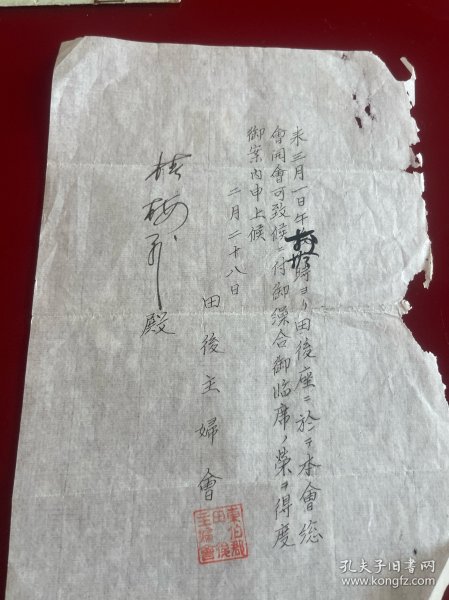 来三月一日午後 時ヨリ田後座ニ於テ本會総
會開會可致候ニ付御繰合御臨席ノ榮ヲ得度
御案内申上候
二月二十八日
田後主婦會
殿
孔夫子旧书网
www.kongfz.com